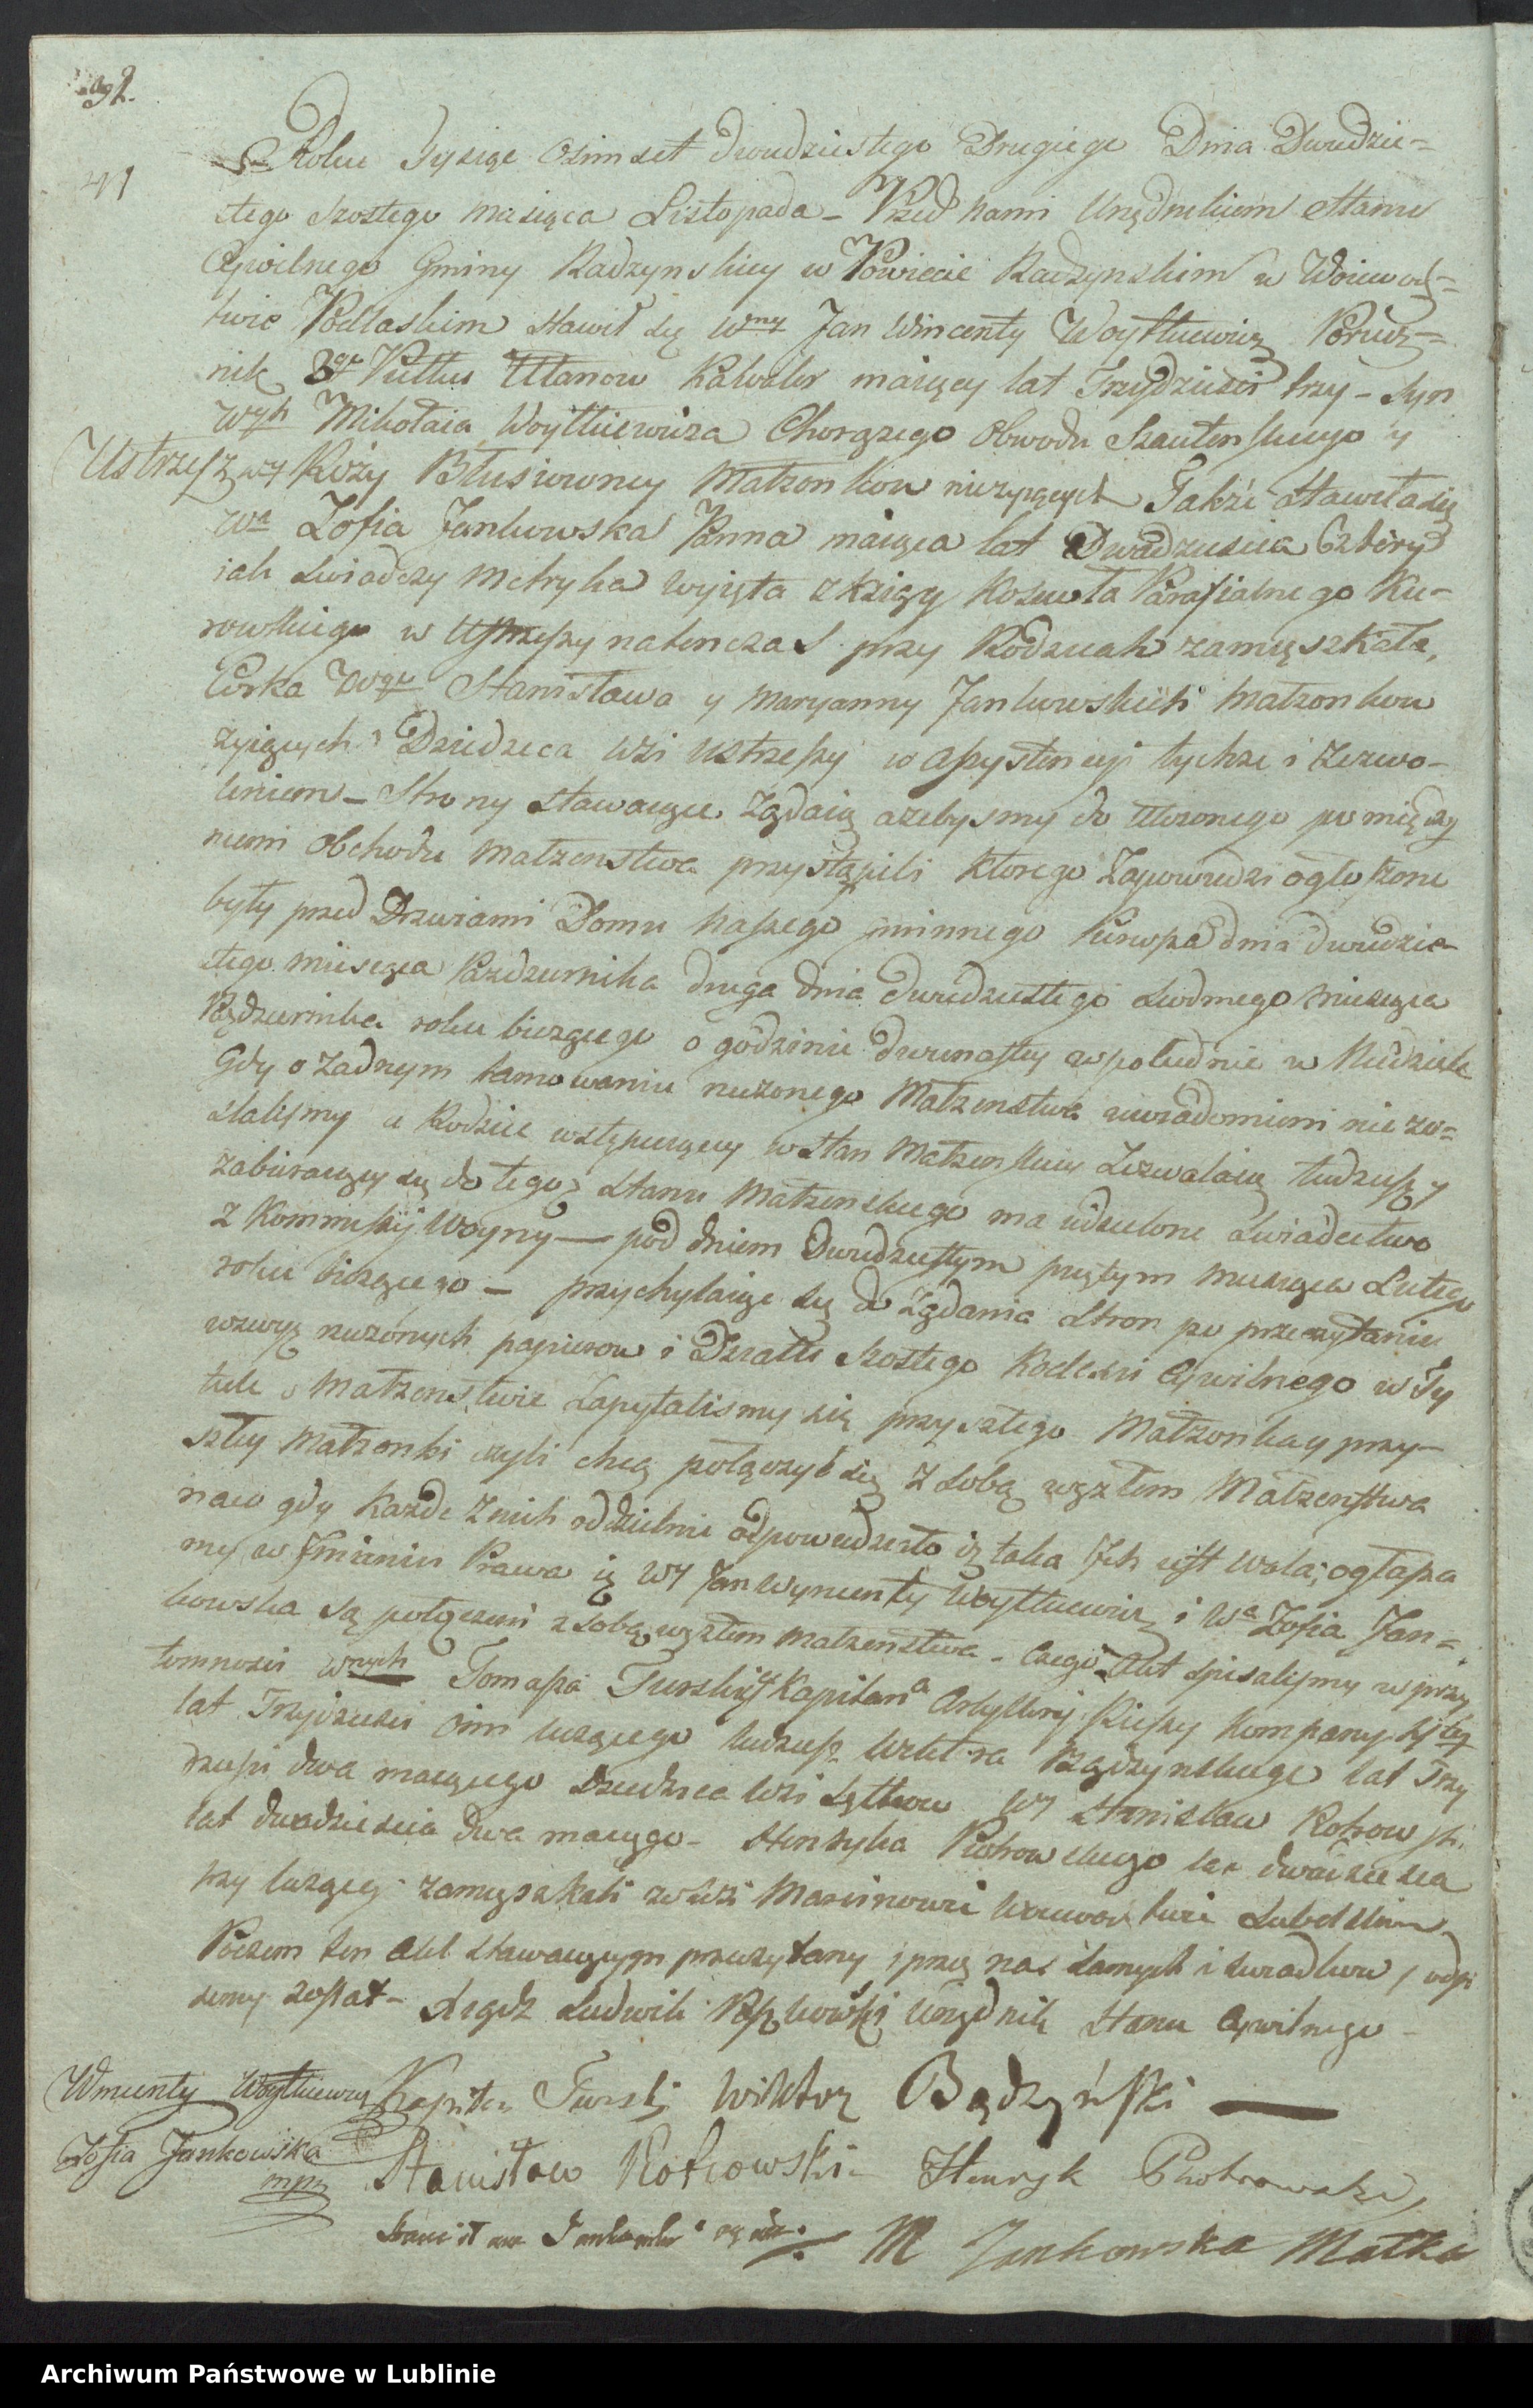 92.
41
Roku Tysiąc Osimset dwudziestego Drugiego Dnia Dwudzie=
stego szostego miesiąca Listopada – Przed nami Urzędnikiem Stanu
Cywilnego Gminy Radzynskiey w Powiecie Radzynskim w Woiewodz=
twie Podlaskim stawił się Wny Jan Wincenty Woytkiewicz Porucz=
nik 3go Pułku Ułanow Kawaler maiący lat Trzydzieści trzy – syn
Wych Mikołaia Woytkiewicza Chorązego Obwodu Szawelskiego y
Ustrzesz
Rozy Małzonkow niezyiących Takze stawiła się
Wa Zofia Jankowska Panna maiąca lat Dwadziescia Cztery
iak swiadczy metryka wyięta z Xsięgy Koscioła Parafialnego Ku-
rowskiego w Ustrzeszy natenczas przy Rodzicach zamięszkała,
Corka Wgo Stanisława y Maryanny Jankowskich małzonkow
zyiących Dziedzica wsi Ustrzeszy w assystencyi tychze i zezwo-
leniem – Strony stawaiące Ządaią azebysmy do ułozonego pomiędzy
niemi Obchodu małzenstwa przystąpili ktorego Zapowiedzi ogłoszone
były przed Drzwiami Domu naszego gminnego Pierwsza dnia dwudzie-
stego miesiąca Pazdziernika druga dnia dwudziestego siodmego miesiąca
Pazdziernika roku biezącego o godzinie dwunastey w południe w Niedziele
Gdy o zadnym tamowaniu rzeczonego Małzenstwa uwiadomieni nie zo=
stalismy a Rodzice wstępuiący w stan Małzenski Zezwalaią tudziesz y
zabieraiący się do tego Stanu Małzenskiego ma udzielone swiadectwo
z Kommissyi Woyny — pod dniem Dwudziestym piątym miesiąca Lutego
roku biezącego – przychylaiąc się do Ządania Stron po przeczytaniu
wzwyż rzeczonych papierow i Działu szostego Kodexu Cywilnego w Ty
tule o Małzenstwie Zapytalismy się przyszłego Małzonka y przy-
szłey Małzonki czyli chcą połączyć się z sobą węzłem Małzenstwa
na co gdy kazde z nich oddzielnie odpowiedziało iz taka Ich iest wola; ogłasza
my w Imieniu Prawa iz Wy Jan Wyncenty Woytkiewicz i Wa Zofia Jan=
kowska są połączeni z sobą węzłem małzenstwa – Czego Akt spisalismy w przy
tomnosci Wnych Tomasza Turskiego Kapitana Artylleryi Pieszy kompanyi 4tey
lat Trzydziesci osm liczącego tudziesz Wiktora Bądzynskiego lat Trzy
dziesci dwa maiącego Dziedzica wsi Wy Stanisław Kotrowski
lat dwadziescia dwa maiącego – Henryka Piotrowskiego lat dwadziescia
trzy liczący zamięszkali we wsi Marcinowie Woiewodztwie Lubelskim
Poczem ten Akt stawaiącym przeczytany i przez nas samych i swiadkow podpi
sany został – Xiądz Ludwik Urzędnik Stanu Cywilnego –
Wincenty Woytkiewicz Kapitan Turski Wiktor Bądzyński —
Zofia Jankowska Stanisław Kotrowski – Henryk Piotrowski
mpr
Stanisław Jankowski M Jankowska Matka
Archiwum Państwowe w Lublinie